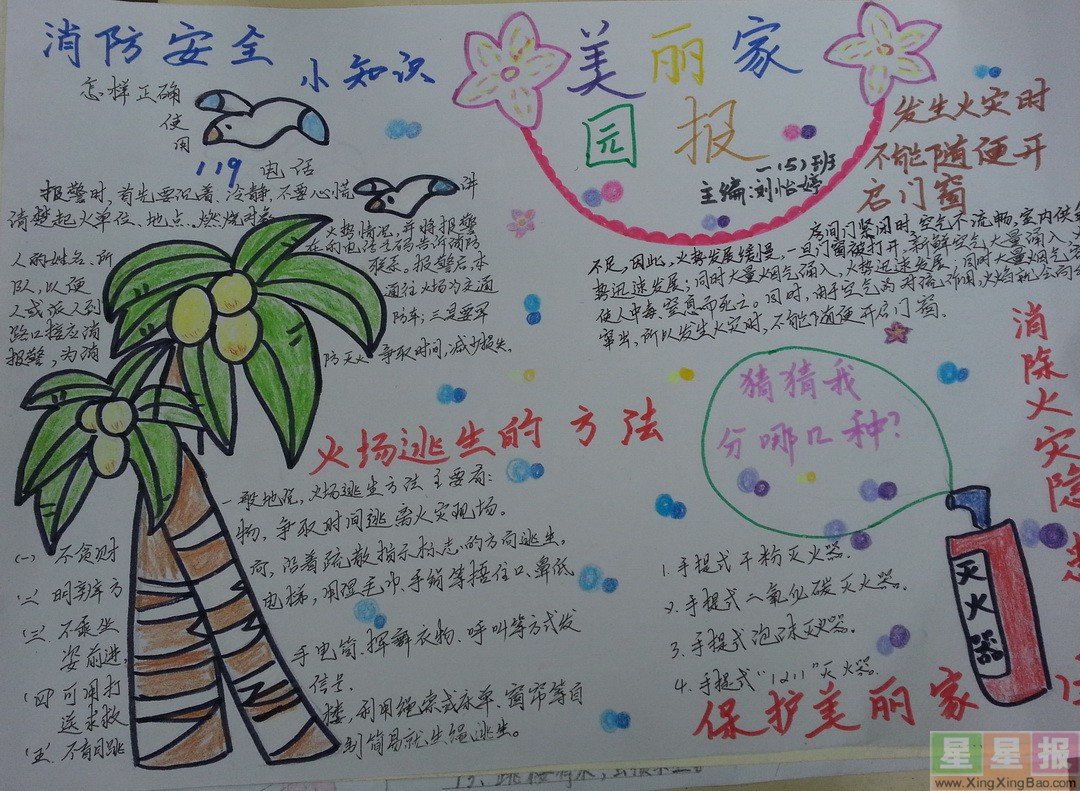 消防安全
小知识
怎样正确
使
用
119电话
报警时,首先要沉着、冷静,不要心慌 讲
清楚起火单位、地点、燃烧对象 火势情况,并将报警
人的姓名、所 在的电话号码告诉消防
队,以便 联系。报警后,本
人或派人到 通往火场的交通
路口接应消 防车;三是要军
报警,为消 防灭火争取时间,减少损失。
美丽家
园报
一(5)班
主编:刘怡婷
发生火灾时
不能随便开
启门窗
房间门紧闭时,空气不流畅,室内供氧
不足,因此,火势发展缓慢,一旦门窗被打开,新鲜空气大量涌入,火
势迅速发展;同时大量烟气涌入,火势迅速发展;同时大量烟气
使人中毒、窒息而死亡。同时,由于空气的对流作用,火焰就会向
窜出,所以发生火灾时,不能随便开启门窗。
火场逃生的方法
一般地说,火场逃生方法主要有:
(一)不贪财物,争取时间逃离火灾现场。
(二)明辨方向,沿着疏散指示标志的方向逃生。
(三)不乘坐电梯,用湿毛巾、手绢等捂住口鼻低
姿前进,
(四)可用打手电筒、挥舞衣物、呼叫等方式发
送求救信号
(五)不盲目跳楼,利用绳索或床单、窗帘等自
制简易救生绳逃生。
猜猜我
分哪口种?
1.手提式干粉灭火器.
2.手提式二氧化碳灭火器.
3.手提式泡沫灭火器.
4.手提式“1211”灭火器
灭火器
消除火灾隐患
保护美丽家
星星报
www.XingXingBao.com